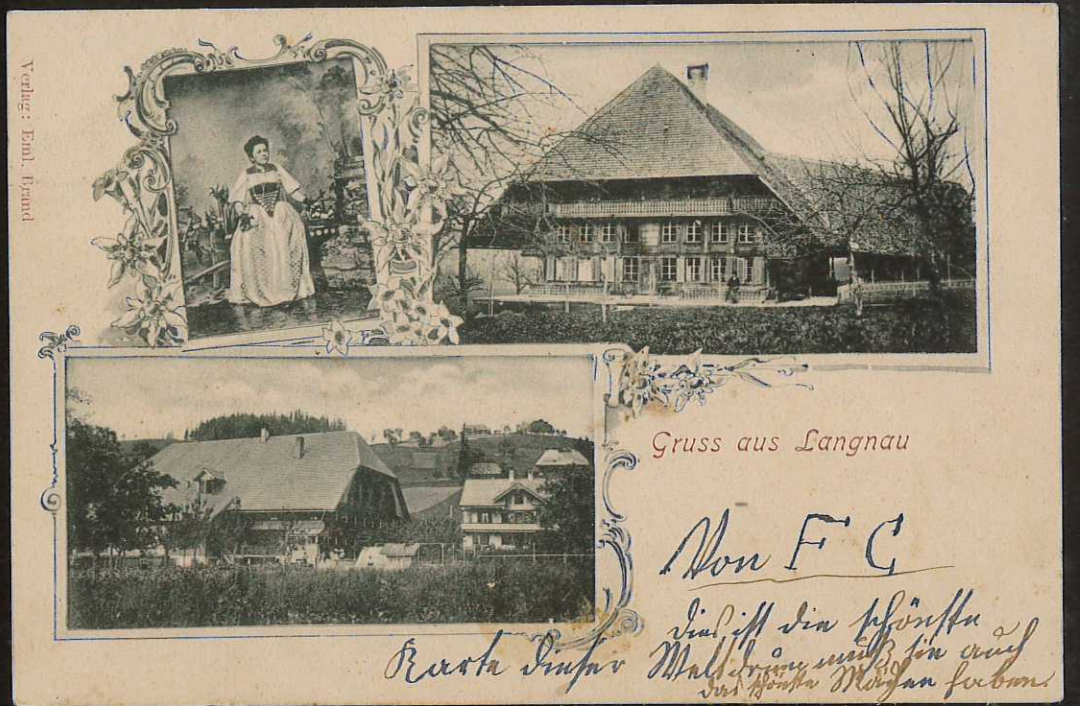 Verlag: Eml. Brand
Gruss aus Langnau
Von F C
dies ist die schönste
Karte dieser Welt drum muß sie auch
das schönste Mädchen haben.